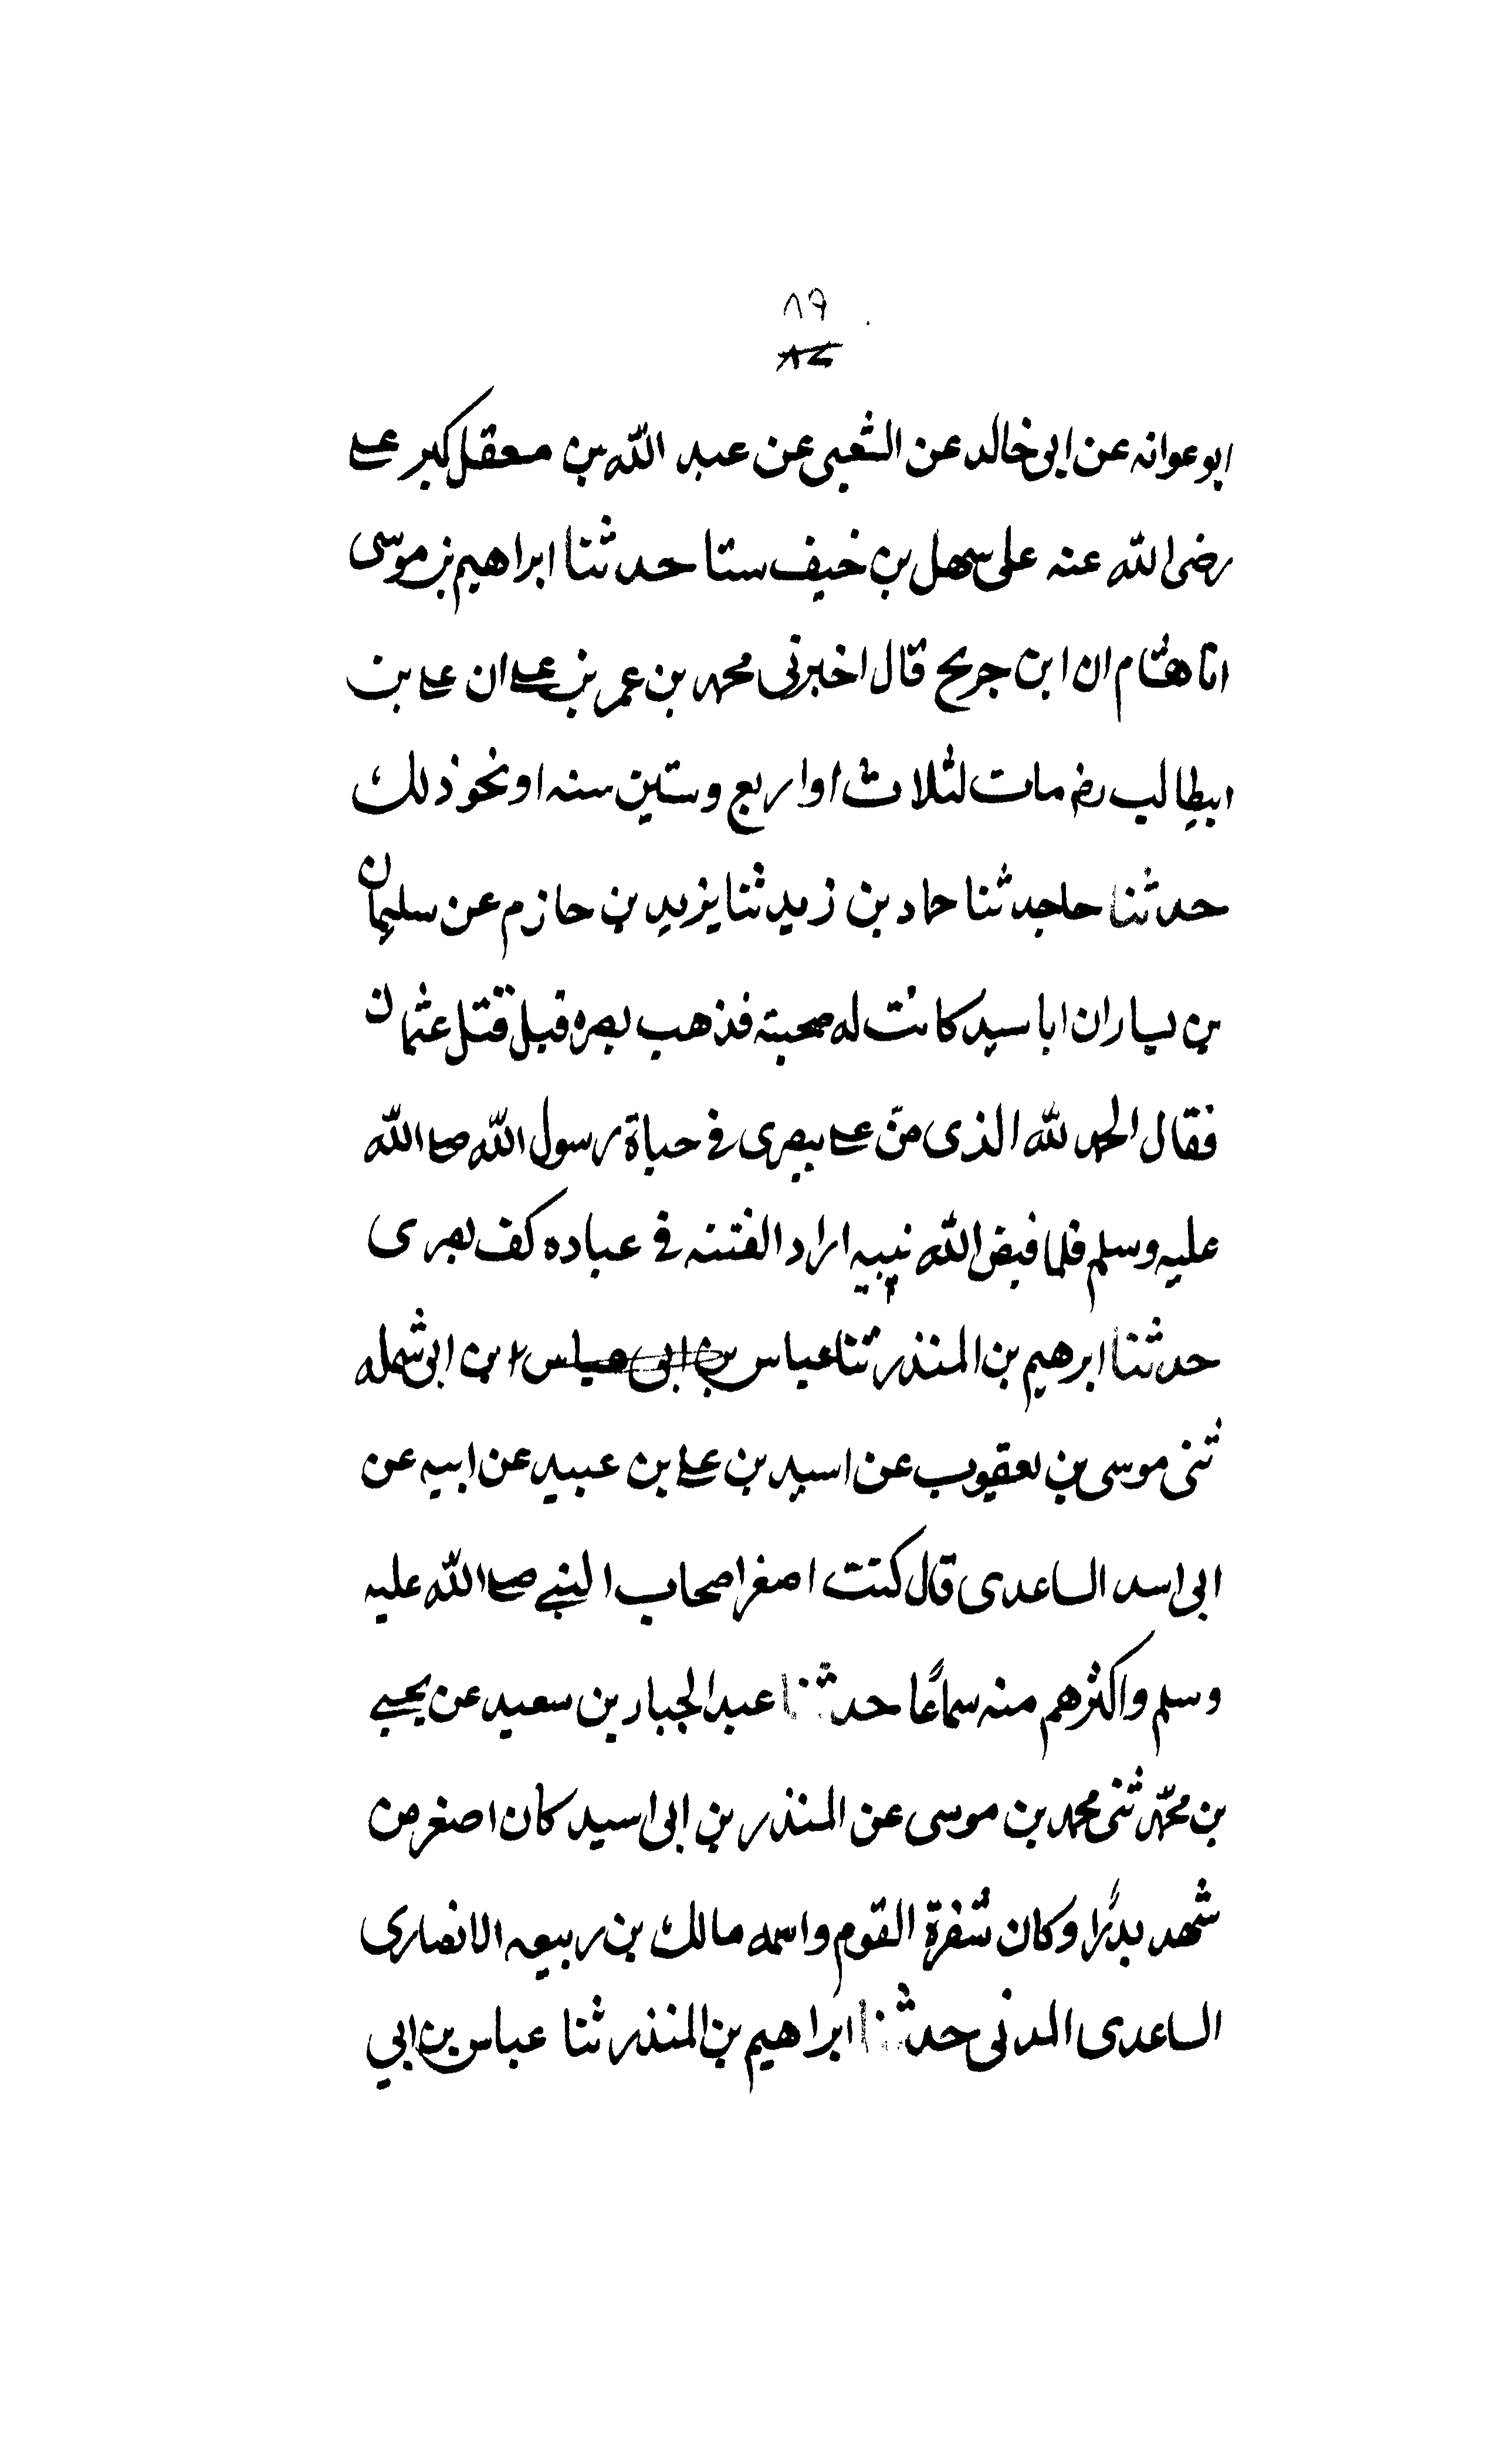 ٨٩
ابو عوانه عن ابى خالد عن الشعبى عن عبد الله بن معقل كبر على
رضى الله عنه على سهل بن خيف ستا حدثنا ابراهيم بن موسى
انا هشام ان ابن جريج قال اخبرنى محمد بن عمر بن على ان على بن
ابيطالب رضـ مات لثلاث او اربع وستين سنه او نحو ذلك
حدثنا حاجد ثنا حماد بن زيد ثنا يزيد بن حازم عن سليمان
بن يسار ان ابا سيد كانت له صحبته فذهب بصره قبل قتل عثمان
فقال الحمد لله الذى منّ على ببصرى فى حياة رسول الله صلى الله
عليه وسلم فلما قبض الله نبيه اراد الفتنه فى عباده كف بصرى
حدثنا ابرهيم بن المنذر ثنا عباس بن ابى عباس ابن ابى شمله
ثنى موسى بن يعقوب عن اسيد بن على بن عبيد عن ابيه عن
ابى اسد الساعدى قال كنت اصغر اصحاب النبى صلى الله عليه
وسلم واكثرهم منه سماعًا حدثنا عبد الجبار بن سعيد عن يحيى
بن محمّد ثنى محمد بن موسى عن المنذر بن ابى اسيد كان اصغر من
شهد بدرًا وكان شفرة القوم واسمه مالك بن ربيعه الانصارى
الساعدى المدنى حدثنا ابراهيم بن المنذر ثنا عباس بن ابي